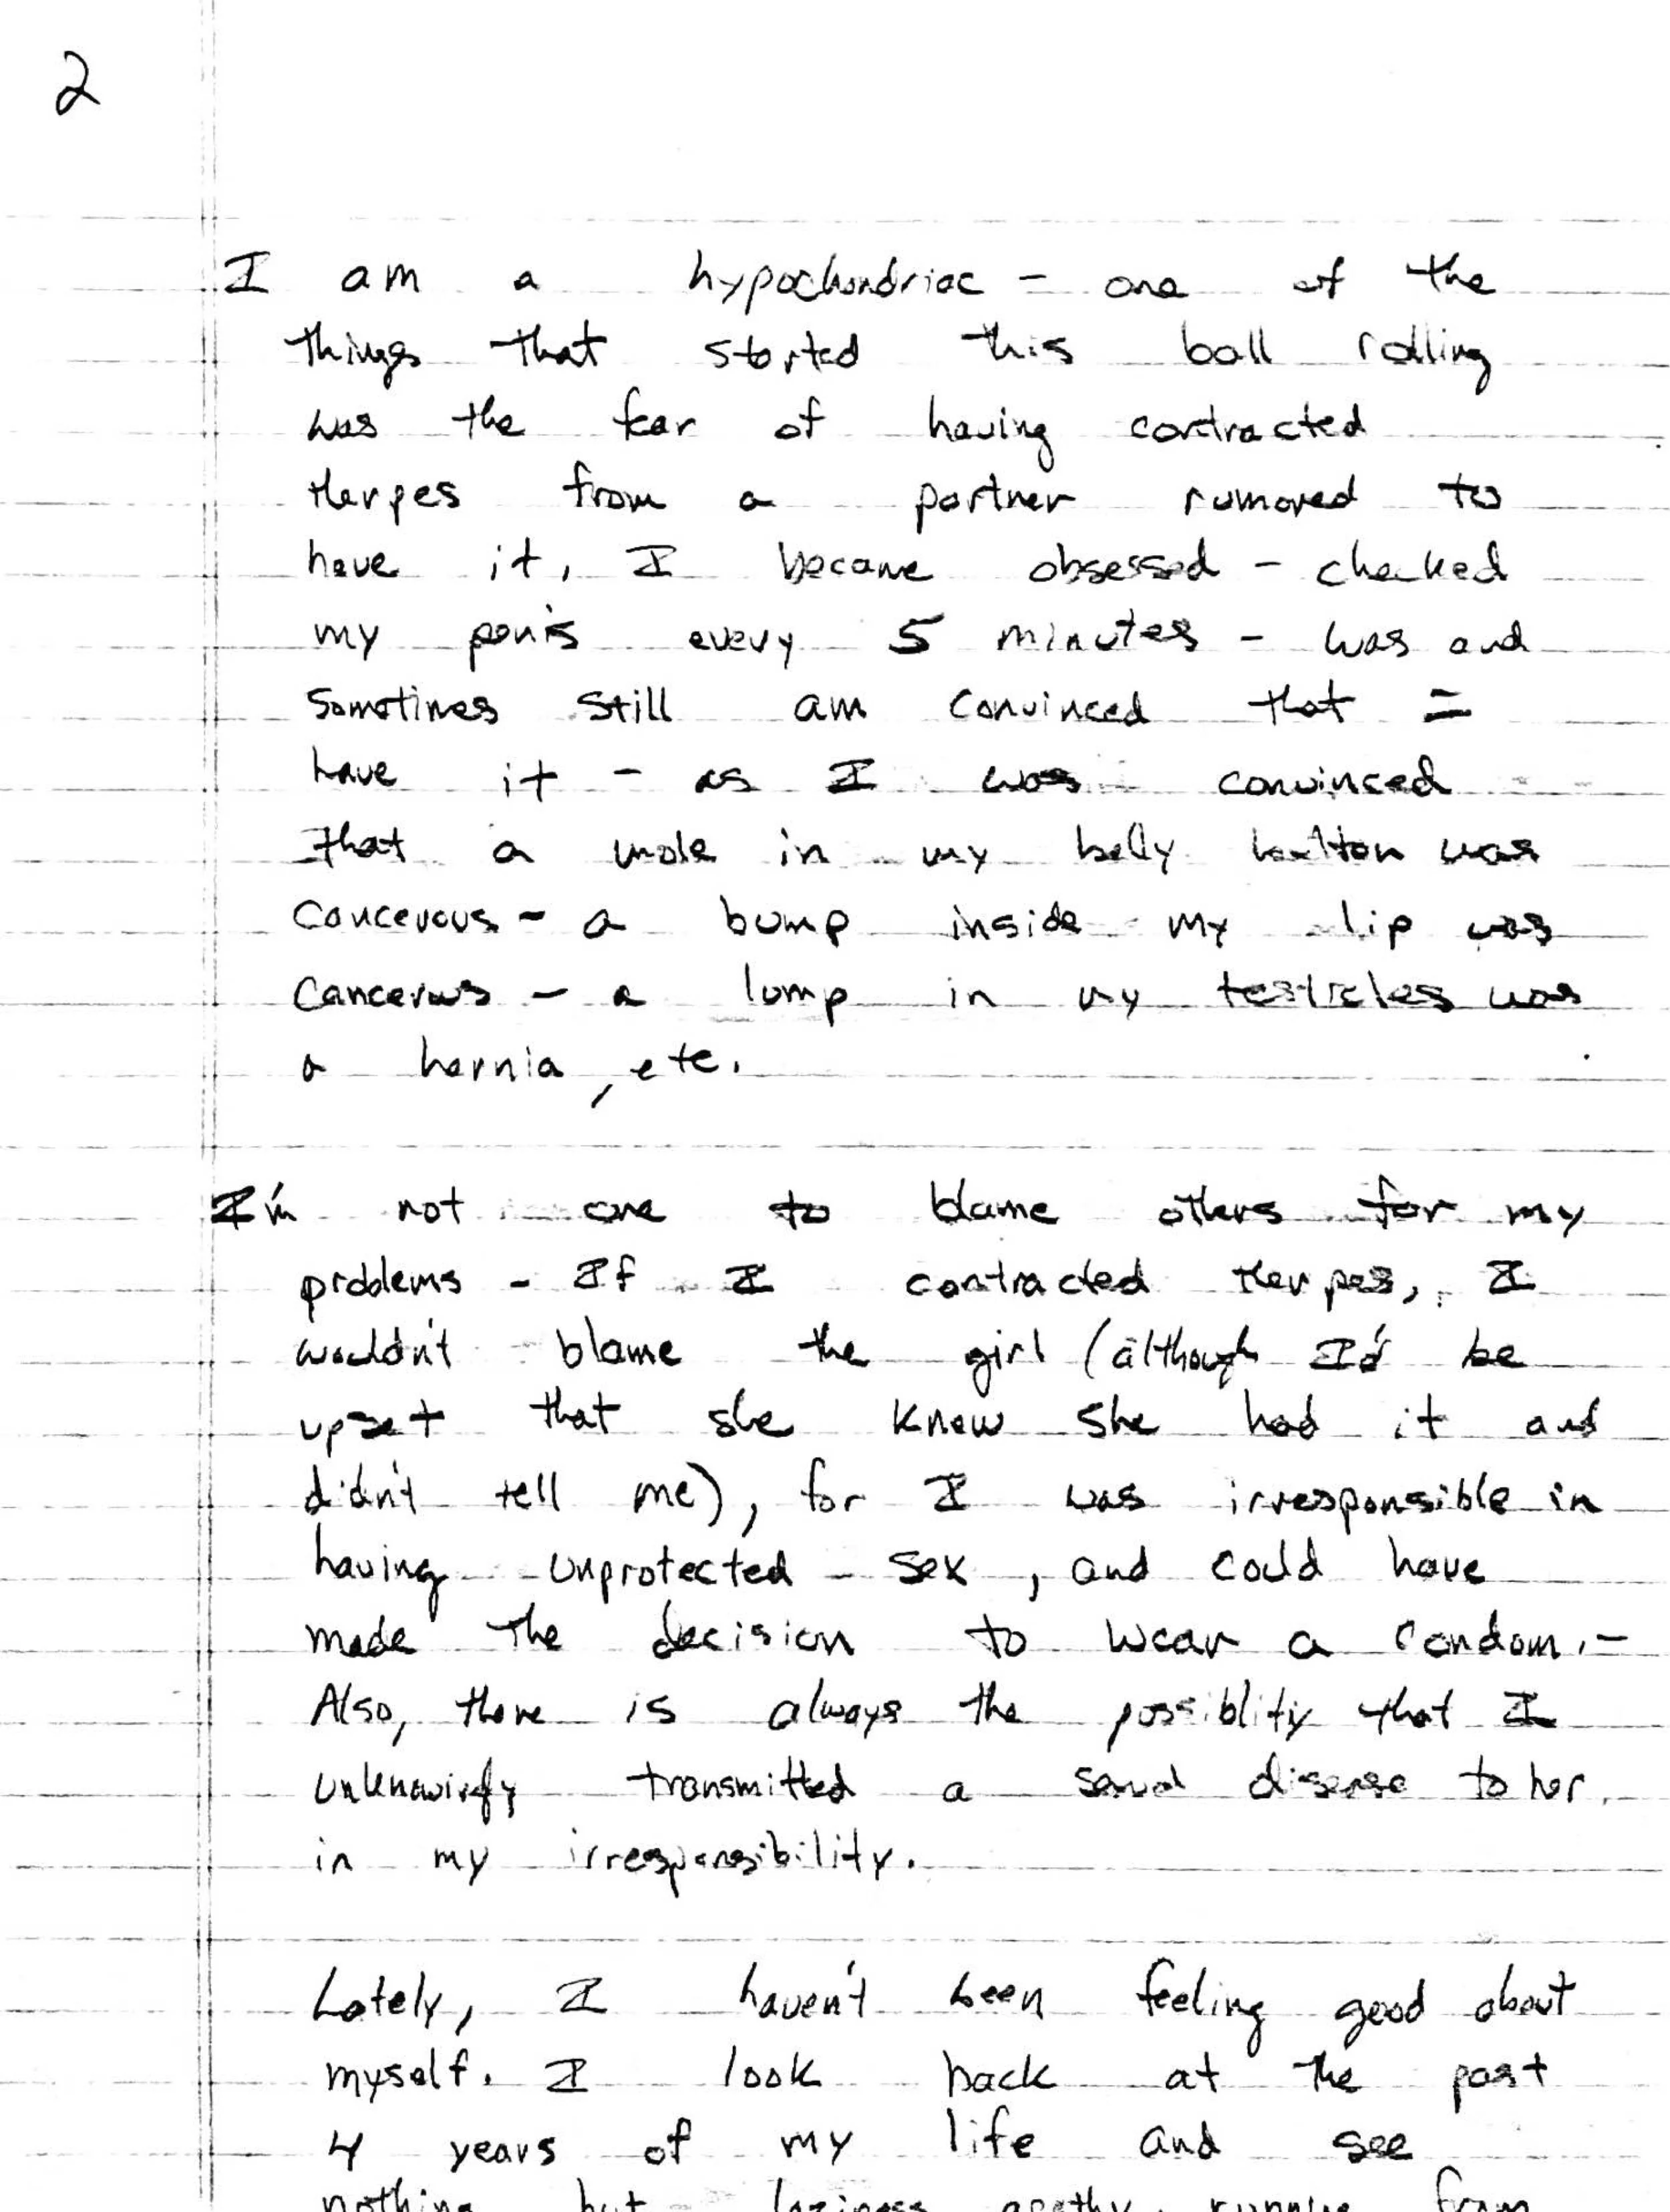 2
I am a hypochondriac - one of the
things that started this ball rolling
was the fear of having contracted
Herpes from a partner rumored to
have it, I became obsessed - checked
my penis every 5 minutes - was and
sometimes still am convinced that I
have it - as I was convinced
that a mole in my belly button was
cancerous - a bump inside my lip was
cancerous - a lump in my testicles was
a hernia, etc.
I'm not one to blame others for my
problems - If I contracted Herpes, I
wouldn't blame the girl (although I'd be
upset that she knew she had it and
didn't tell me), for I was irresponsible in
having unprotected sex, and could have
made the decision to wear a condom. -
Also, there is always the possiblity that I
unknowingly transmitted a sexual disease to her
in my irresponsibility.
Lately, I haven't been feeling good about
myself. I look back at the past
4 years of my life and see
nothing but laziness, apathy, running from